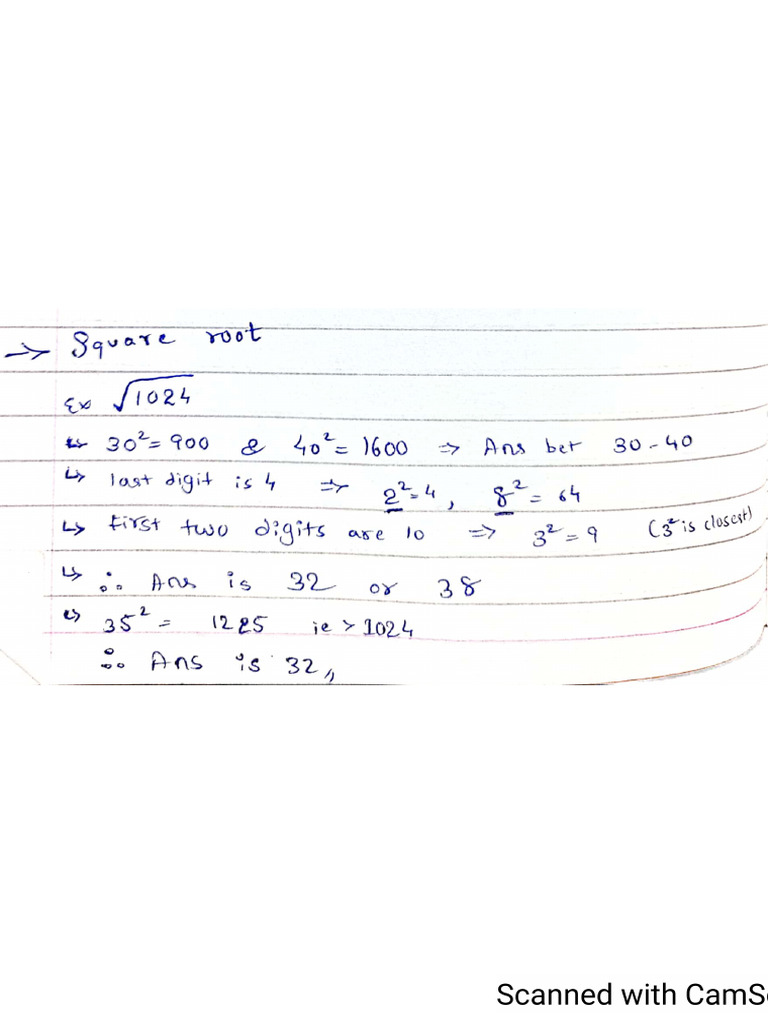 → Square root
Ex √1024
↳ 30² = 900 & 40² = 1600 ⇒ Ans bet 30 - 40
↳ last digit is 4 ⇒ 2² = 4, 8² = 64
↳ first two digits are 10 ⇒ 3² = 9 (3² is closest)
↳ ∴ Ans is 32 or 38
↳ 35² = 1225 ie > 1024
∴ Ans is 32,,
Scanned with CamSc